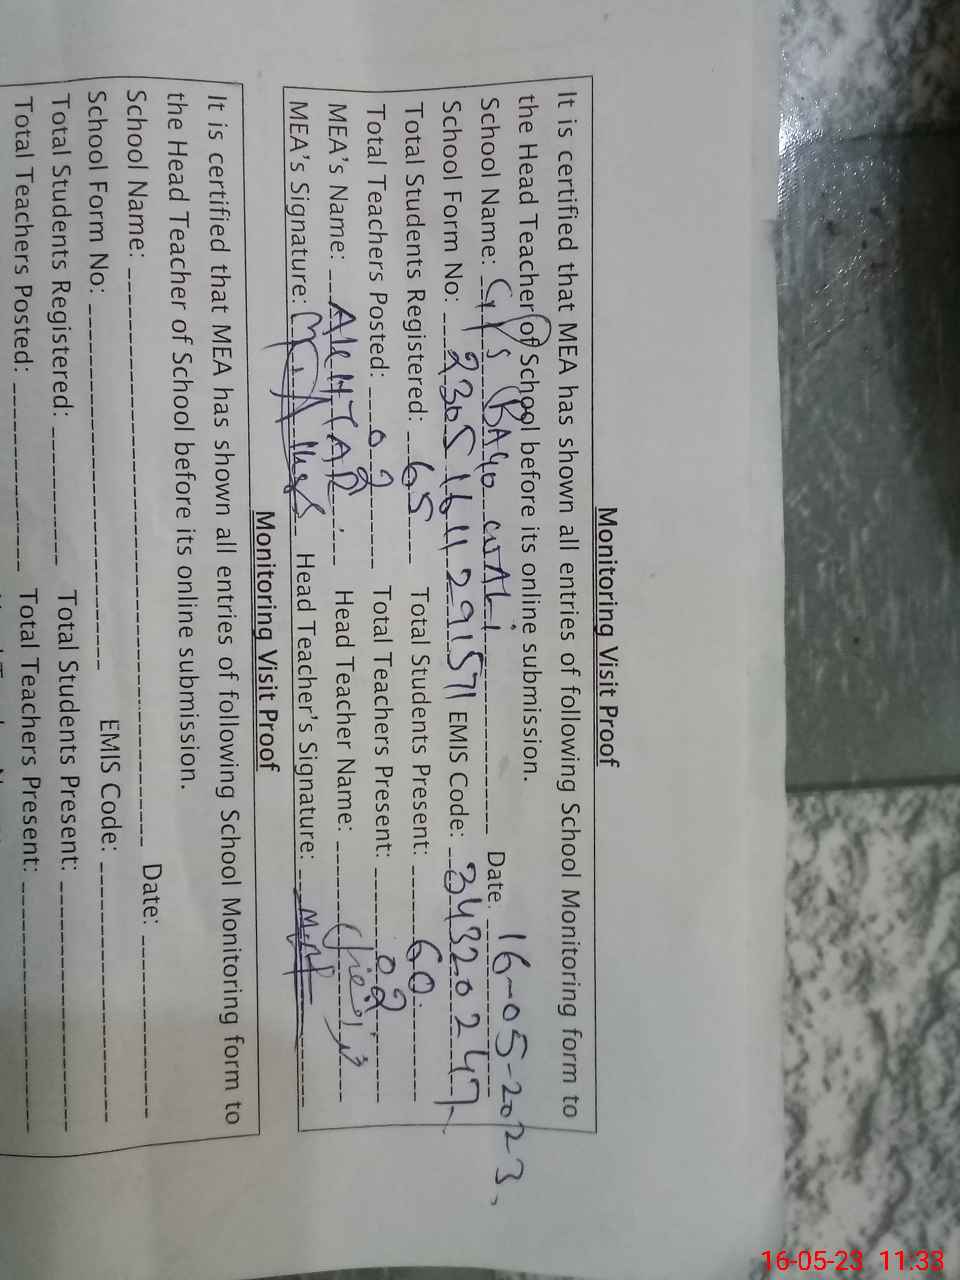 Monitoring Visit Proof
It is certified that MEA has shown all entries of following School Monitoring form to
the Head Teacher of School before its online submission.
School Name: GPS BAGO WALI Date: 16-05-2023,
School Form No: 23051611291571 EMIS Code: 34320247
Total Students Registered: 65 Total Students Present: 60
Total Teachers Posted: 02 Total Teachers Present: 02
MEA's Name: AKHTAR Head Teacher Name:
MEA's Signature: Head Teacher's Signature:
Monitoring Visit Proof
It is certified that MEA has shown all entries of following School Monitoring form to
the Head Teacher of School before its online submission.
School Name: Date:
School Form No: EMIS Code:
Total Students Registered: Total Students Present:
Total Teachers Posted: Total Teachers Present:
16-05-23 11:33